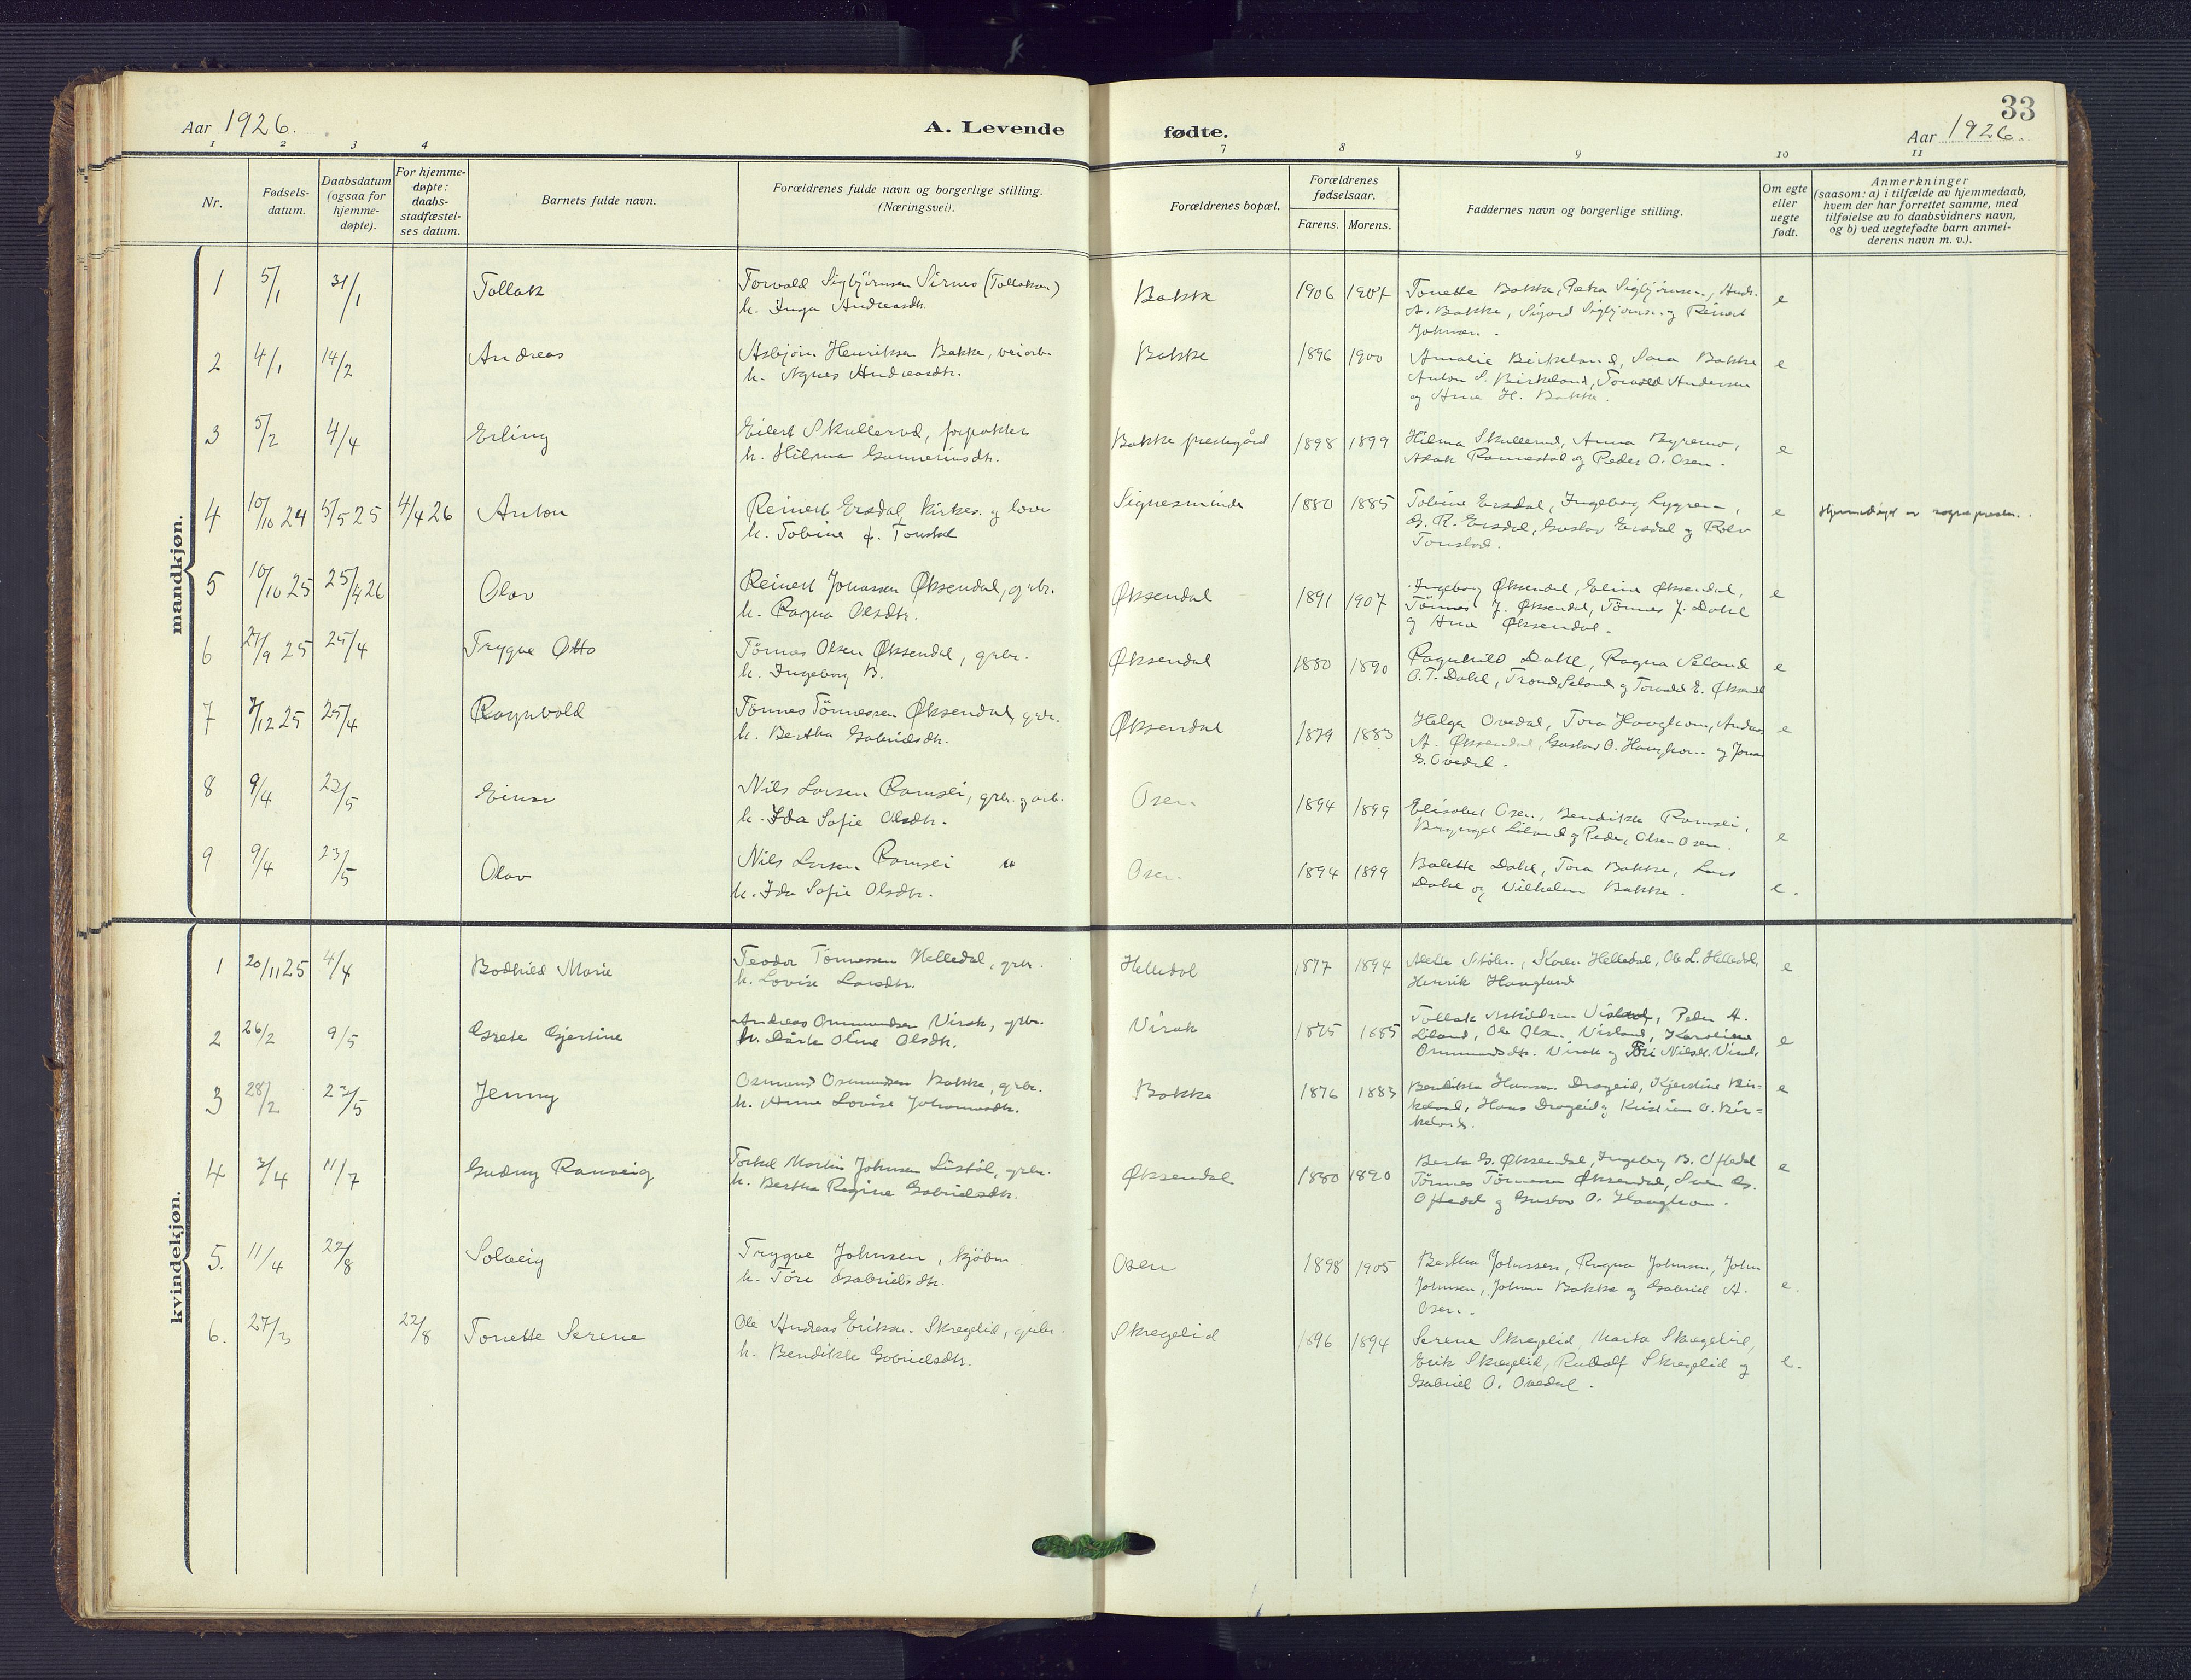 33
Aar 1926.
A. Levende fødte.
Aar 1926.
1 2 3 4 7 8 9 10 11
Nr.
Fødsels-
datum.
Daabsdatum
(ogsaa for
hjemme-
døpte).
For hjemme-
døpte:
daabs-
stadfæstel-
ses datum.
Barnets fulde navn.
Forældrenes fulde navn og borgerlige stilling.
(Næringsvei).
Forældrenes bopæl.
Forældrenes
fødselsaar.
Farens. Morens.
Faddernes navn og borgerlige stilling.
Om egte
eller
uegte
født.
Anmerkninger
(saasom: a) i tilfælde av hjemmedaab,
hvem der har forrettet samme, med
tilføielse av to daabsvidners navn,
og b) ved uegtefødte barn anmel-
derens navn m. v.).
mandkjøn.
1 5/1 31/1 Tollak Torvald Sigbjörnsen Sirnes (Tollaksen) Bakke 1906 1907 Tonette Bakke, Petra Sigbjörnsen, Andr. e
h. Inga Andreasdtr. A. Bakke, Sigvard Sigbjörnsen og Reinert
Johnsen.
2 4/1 14/2 Andreas Asbjörn Henriksen Bakke, veiarb. Bakke 1896 1900 Amalie Birkeland, Sara Bakke e
h. Agnes Andreasdtr. Anton S. Birkeland, Torvald Andersen
og Arne H. Bakke.
3 5/2 4/4 Erling Eilert Skullerud, forpakter Bakke prestegård 1898 1899 Hilma Skullerud, Anna Byremo, e
h. Hilma Gunneriusdtr. Aslak Rannestad og Peder O. Osen.
4 10/10 24 5/5 25 4/4 26 Anton Reinert Ersdal, kirkes. og lærer Signesminde 1880 1885 Tobine Ersdal, Ingeborg Lygren, e Hjemmedøpt av sognepresten.
h. Tobine f. Tonstad G. R. Ersdal, Gustav Ersdal og Rolv
Tonstad.
5 10/10 25 25/4 26 Olav Reinert Jonassen Øksendal, grbr. Øksendal 1891 1907 Ingeborg Øksendal, Eline Øksendal, e
h. Ragna Olsdtr. Tönnes J. Øksendal, Tönnes J. Dahl
og Arne Øksendal.
6 27/9 25 25/4 Trygve Otto Tönnes Olsen Øksendal, grbr. Øksendal 1880 1890 Ragnhild Dahl, Ragna Seland e
h. Ingeborg B. O. T. Dahl, Trond Seland og Torvald E. Øksendal
7 7/12 25 25/4 Ragnvald Tönnes Tönnessen Øksendal, grbr. Øksendal 1879 1883 Helga Ovedal, Tora Haughom, Andreas e
h. Bertha Gabrielsdtr. A. Øksendal, Gustav O. Haughom og Jonas
G. Ovedal.
8 9/4 23/5 Einar Nils Larsen Ramsei, grbr. og arb. Osen 1894 1899 Elisabet Osen, Bendikte Ramsei,
h. Ida Sofie Olsdtr. Bryngel Liland og Peder Olsen Osen. e
9 9/4 23/5 Olav Nils Larsen Ramsei " Osen 1894 1899 Bolette Dahl, Tora Bakke, Lars
h. Ida Sofie Olsdtr. Dahl og Vilhelm Bakke. e.
kvindekjøn.
1 20/11 25 4/4 Bodhild Marie Teodor Tönnessen Helledal, grbr. Helledal 1877 1894 Stölen, Karen Helledal, Ole L. Helledal, e
h. Lovise Larsdtr. Henrik Haugland
2 26/2 9/5 Grete Gjertine Andreas Ommundsen Virak, grbr. Virak 1875 1885 Tollak Askildsen Visland, Peder A.
h. Dårte Oline Olsdtr. Liland, Ole Olsen Visland, Karoline e
Ommundsdtr. Virak og Nilsdtr. Virak
3 28/2 23/5 Jenny Osmund Osmundsen Bakke, grbr. Bakke 1876 1883 Bendikte Hansen Drageid, Kjerstine Bir- e
h. Anne Lovise Johannesdtr. keland, Hans Drageid og Kristian O. Bir=
keland.
4 3/4 11/7 Gudny Ranveig Torkel Martin Johnsen Listöl, grbr. Øksendal 1880 1890 Berta G. Øksendal, Ingeborg B. Oftedal e
h. Bertha Regine Gabrielsdtr. Tönnes Tönnessen Øksendal, Sven
Oftedal og Gustav O. Haughom.
5. 11/4 22/8 Solveig Trygve Johnsen, kjöbm Osen 1898 1905 Bertha Johnsen, Ragna Johnsen, John
h. Töre Gabrielsdtr. Johnsen, Johan Bakke og Gabriel A. e.
Osen.
6. 27/3 22/8 Tonette Serene Ole Andreas Eriksen Skregelid, grbr. Skregelid 1896 1894 Serene Skregelid, Marta Skregelid,
h. Bendikte Gabrielsdtr. Erik Skregelid, Rudolf Skregelid og e.
Gabriel O. Ovedal.